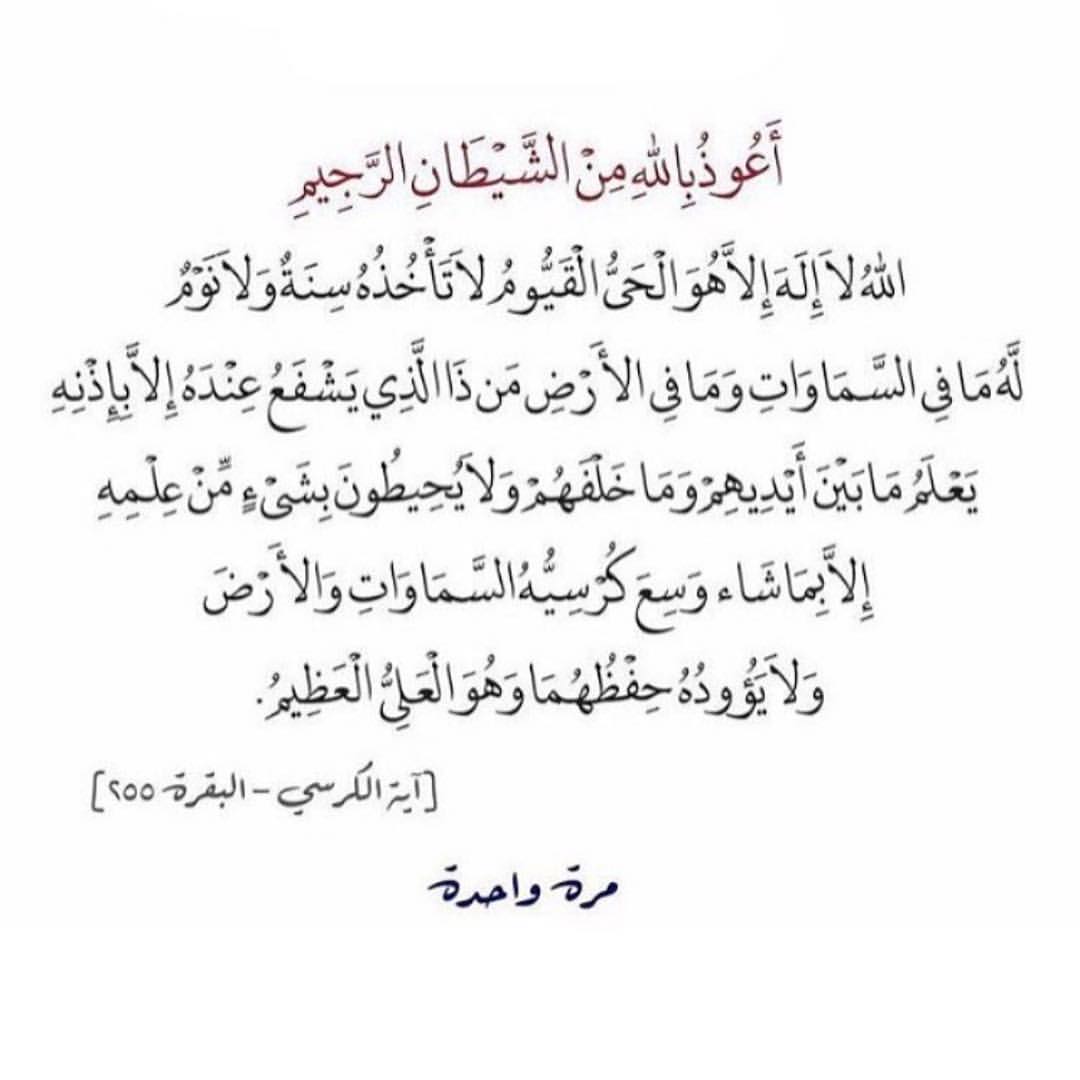 أَعُوذُ بِاللهِ مِنْ الشَّيْطَانِ الرَّجِيمِ
اللهُ لاَ إِلَهَ إِلاَّ هُوَ الْحَيُّ الْقَيُّومُ لاَ تَأْخُذُهُ سِنَةٌ وَلاَ نَوْمٌ
لَّهُ مَا فِي السَّمَاوَاتِ وَمَا فِي الأَرْضِ مَن ذَا الَّذِي يَشْفَعُ عِنْدَهُ إِلاَّ بِإِذْنِهِ
يَعْلَمُ مَا بَيْنَ أَيْدِيهِمْ وَمَا خَلْفَهُمْ وَلاَ يُحِيطُونَ بِشَيْءٍ مِّنْ عِلْمِهِ
إِلاَّ بِمَا شَاء وَسِعَ كُرْسِيُّهُ السَّمَاوَاتِ وَالأَرْضَ
وَلاَ يَؤُودُهُ حِفْظُهُمَا وَهُوَ الْعَلِيُّ الْعَظِيمُ.
[آية الكرسي - البقرة ٢٥٥]
مرة واحدة